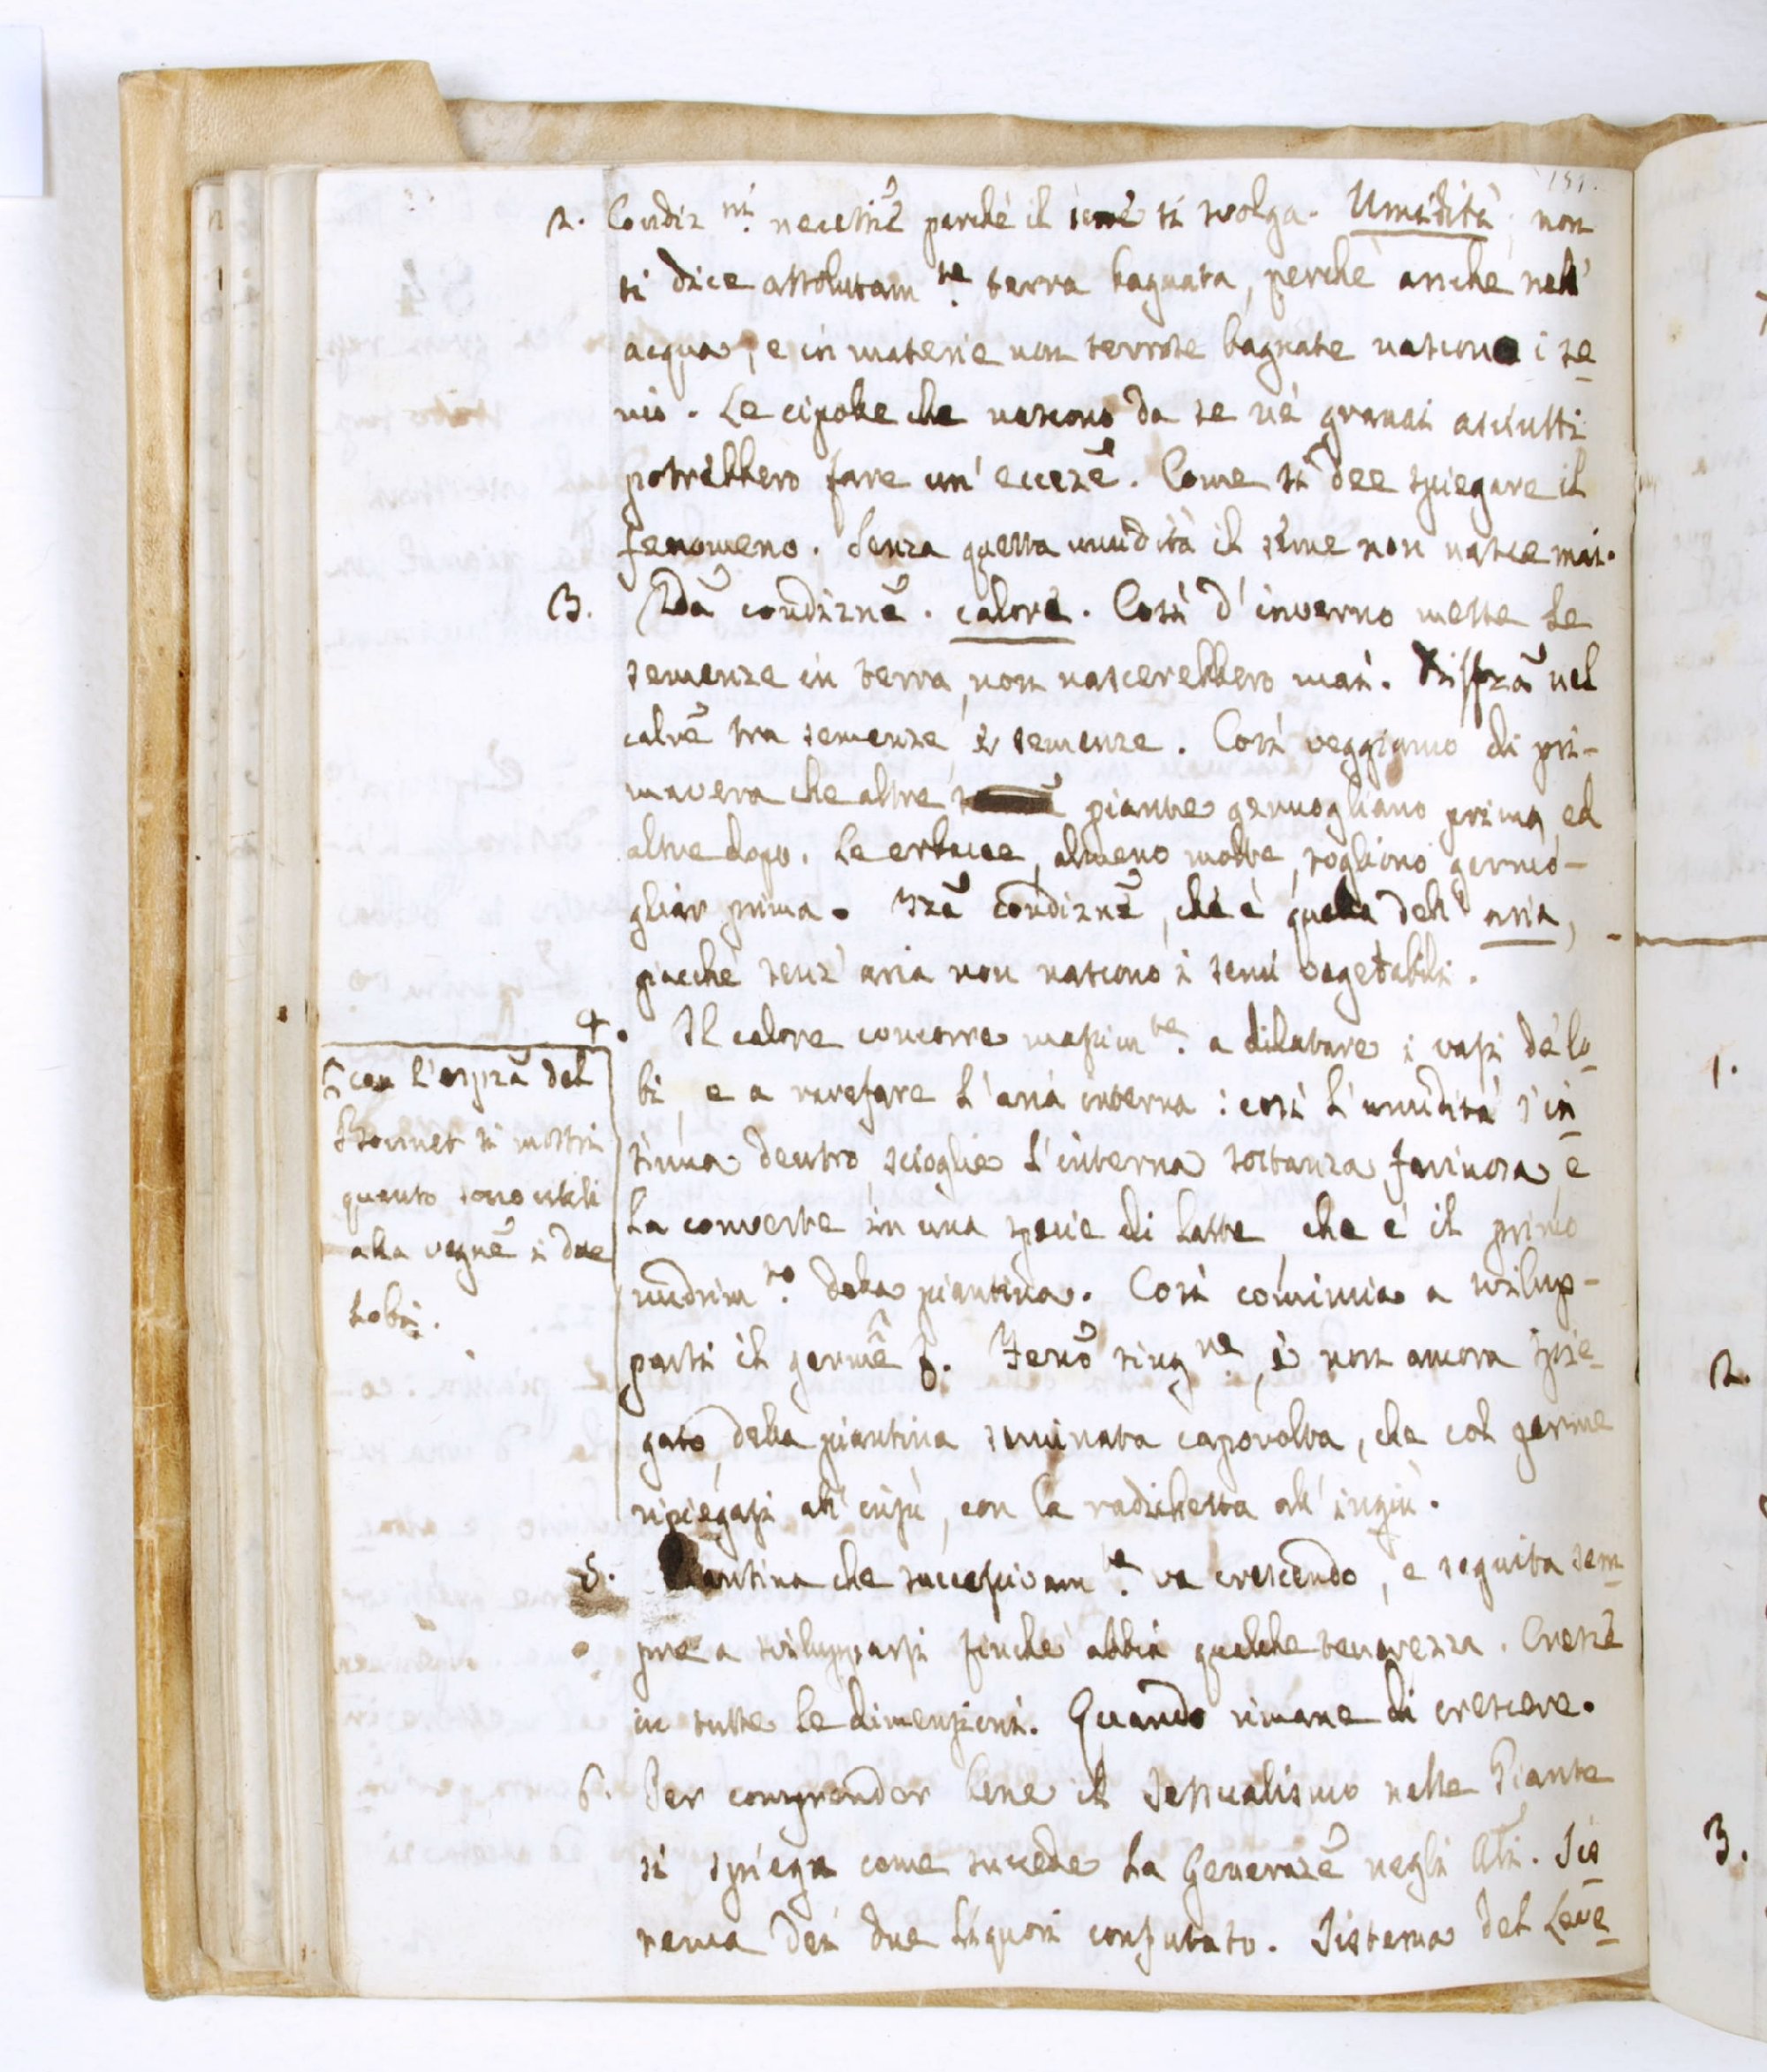 2. Condiz.ni necessrie perché il seme si svolga. Umidità, non
si dice assolutam.te terra bagnata, perché anche nell'
acqua, e in materie non terrose bagnate nascono i se
mi. Le cipolle che nascono da se ne' granai asciutti
potrebbero fare un' ecceze. Come si dee spiegare il
fenomeno. Senza questa umidità il seme non nasce mai.
3. 2da condizne. calore. Così d'inverno messe le
semenze in terra, non nascerebbero mai. nel
calore tra semenze, e semenze. Così veggiamo di pri-
mavera che altre piante germogliano prima, ed
altre dopo. Le erbucce, almeno molte, sogliono germo-
gliar prima. 3za condizne, che è quella dell' aria,
giacché senz' aria non nascono i semi vegetabili.
4. Il calore concorre massim.te a dilatare i vasi de' lo
bi, e a rarefare l'aria interna: così l'umidità s'in
sinua dentro scioglie l'interna sostanza farinosa, e
la converte in una specie di latte, che è il primo
nudrim.to della piantina. Così comincia a svilup-
parsi il germe. Feno sing.re, e non ancora spie-
gato, della piantina seminata capovolta, che col germe
ripiegasi all' insù, con la radichetta all' ingiù.
con l'esprza del
Bonnet si mostri
quanto sono utili
alla vegne i due
lobi.
5. Piantina che successivam.te va crescendo, e seguita sem
pre a svilupparsi finché abbia qualche tenerezza. Cresce
in tutte le dimensioni. Quando rimane di crescere.
6. Per comprender bene il Sessualismo nelle Piante
si spiega come succede la Generaze negli Ali. Sis
tema dei due liquori confutato. Sistema del Leve
1.
2.
3.